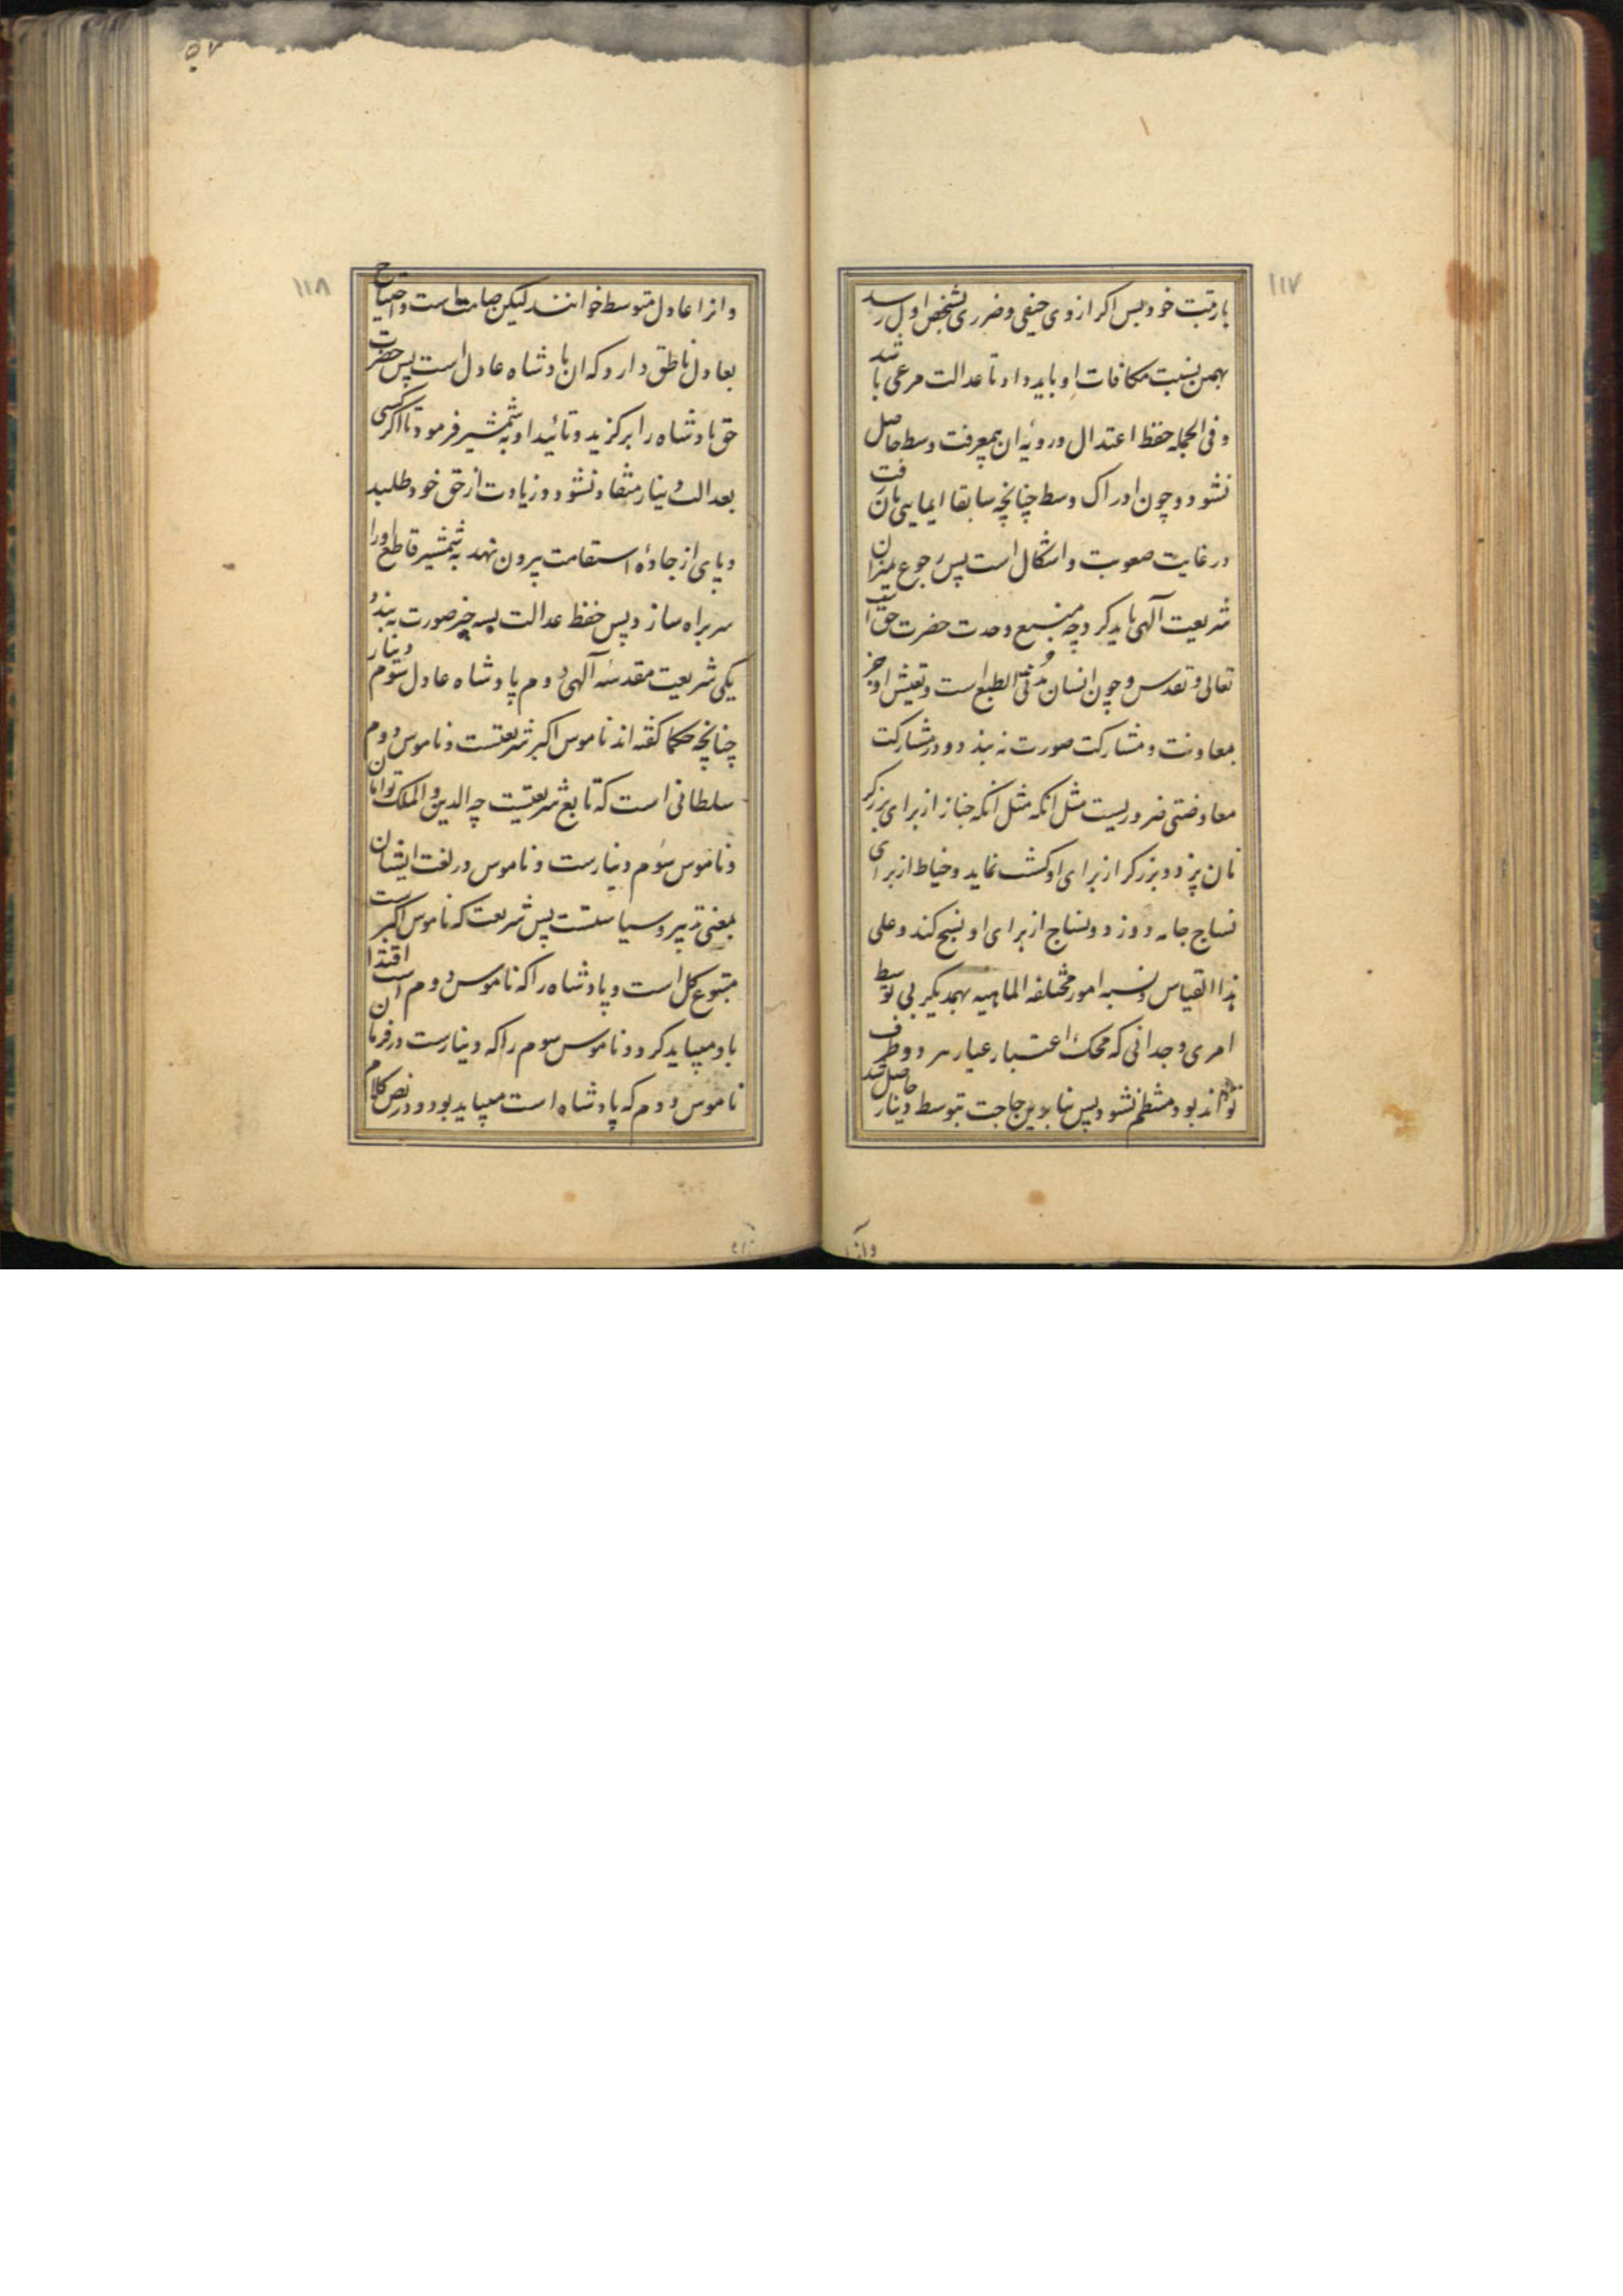 ۱۱۷
بارتبت خود پس اکر از وی حیفی و ضرری بشخص اول رسد
بهمین نسبت مکافات او باید داد تا عدالت مرعی باشد
و فی الجمله حفظ اعتدال و رویه ان بمعرفت وسط حاصل
نشود و چون ادراک وسط چنانچه سابقا ایمایی بان رفت
در غایت صعوبت و اشکال است پس رجوع بمیزان
شریعت آلهی باید کرد چه منبع وحدت حضرت حق است
تعالی و تقدس و چون انسان مدنی الطبع است و تعیش او جز
بمعاونت و مشارکت صورت نه بندد و در مشارکت
معاوضتی ضروریست مثل انکه مثل انکه خباز از برای برزکر
نان پزد و برزکر از برای او کشت نماید و خیاط از برای
نساج جامه دوزد و نساج از برای او نسج کند و علی
هذا القیاس و نسبه امور مختلفه الماهیه بهمدیکر بی توسط
امری وجدانی که محک اعتبار عیار هر دو طرف
تواند بود منتظم نشود پس بنا برین حاجت بتوسط دینار حاصل شد
وانرا
۱۱۸
وانرا عادل متوسط خوانند لیکن صامت است و احتیاج
بعادل ناطق دارد که ان پادشاه عادل است پس حضرت
حق پادشاه را برکزید و تائید او به شمشیر فرمود تا اکر کسی
بعدالت دینار منقاد نشود و زیادت از حق خود طلبد
و پای از جادۀ استقامت بیرون نهد به شمشیر قاطع او را
سر براه سازد پس حفظ عدالت بسه چیز صورت به بندد
یکی شریعت مقدسه آلهی دوم پادشاه عادل سوم دینار
چنانچه حکما کفته اند ناموس اکبر شریعتست و ناموس دوم
سلطانی است که تابع شریعتیست چه الدین و الملک توامان
و ناموس سوم دینارست و ناموس در لغت ایشان
بمعنی تدبیر و سیاستست پس شریعت که ناموس اکبرست
متبوع کل است و پادشاه را که ناموس دوم است اقتدا
باو میباید کرد و ناموس سوم را که دینارست در فرمان
ناموس دوم که پادشاه است میباید بود و در نص کلام